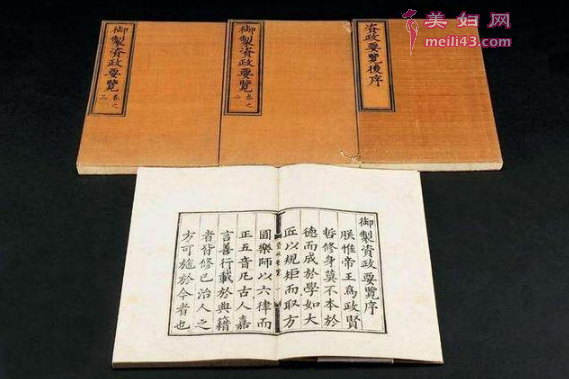 御製資政要覽 卷之三
御製資政要覽 卷之二
資政要覽後序
美妇网
meili43.com
御製資政要覽序
朕惟帝王為政賢
哲修身莫不本於
德而成於學如大
匠以規矩而取方
圓樂師以六律而
正五音凡古人嘉
言善行載於典籍
者皆修己治人之
方可施於今者也